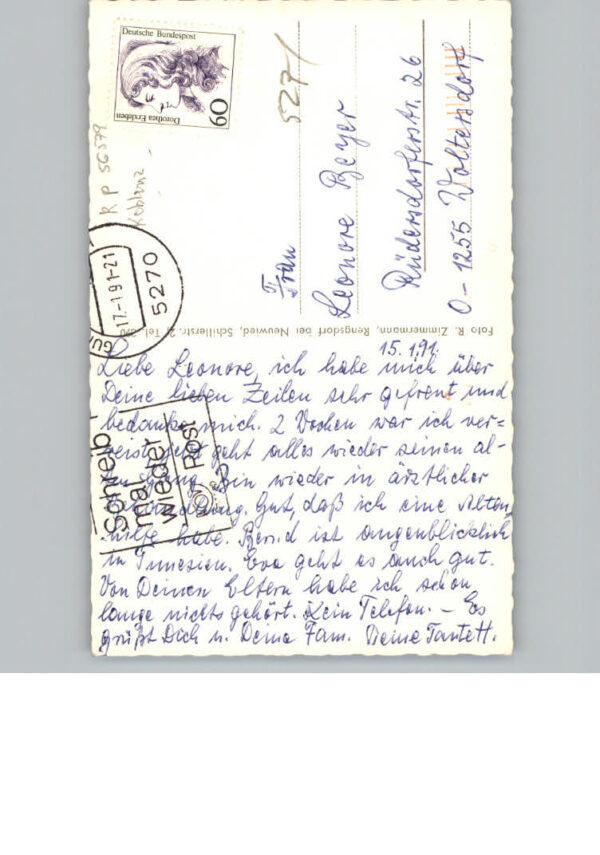 Deutsche Bundespost
Dorothea Erxleben
60
R P 56379
Koblenz
527/
17.-1.91-21
5270
GU
Frau
Leonore Beyer
Rüdersdorferstr. 26
O-1255 Woltersdorf
Foto R. Zimmermann, Rengsdorf bei Neuwied, Schillerstr. 2, Tel. 370
15.1.91.
Liebe Leonore, ich habe mich über
Deine lieben Zeilen sehr gefreut und
bedanke mich. 2 Wochen war ich ver=
reist, jetzt geht alles wieder seinen al-
ten Gang. Bin wieder in ärztlicher
Gut, daß ich eine Alten
hilfe habe. Bernd ist augenblicklich
in Tunesien. Eva geht es auch gut.
Von Deinen Eltern habe ich schon
lange nichts gehört. Kein Telefon. – Es
grüßt Dich u. Deine Fam. Deine Tantett.
Schreib
mal
wieder
Post